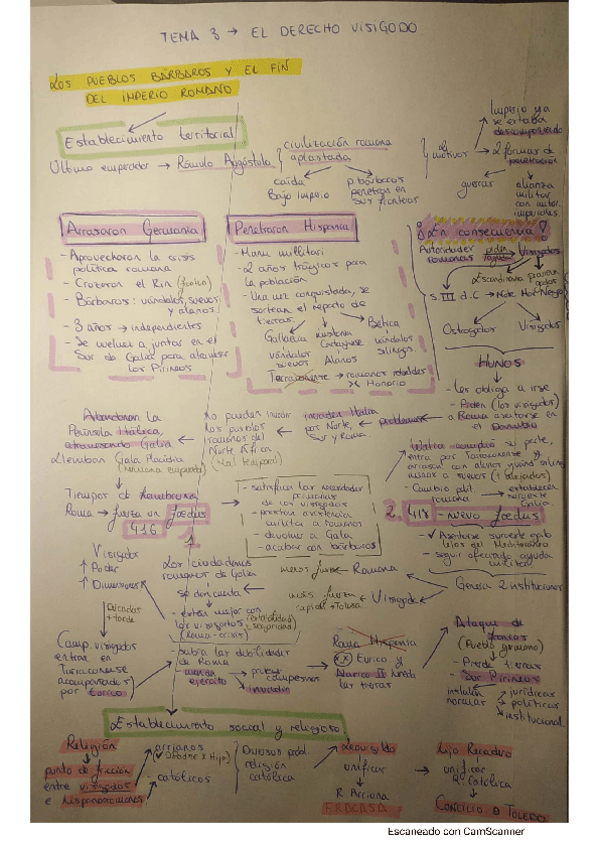 TEMA 3 → EL DERECHO VISIGODO
LOS PUEBLOS BÁRBAROS Y EL FIN
DEL IMPERIO ROMANO
Establecimiento territorial
Último emperador → Rómulo Augústulo
civilización romana
aplastada
caída
Bajo Imperio
p. bárbaros
penetran en
sus fronteras
2 motivos
Imperio ya
se estaba
descomponiendo
2 formas de
penetración
guerras
alianza
militar
con autor.
imperiales
Arrasaron Germania
- Aprovecharon la crisis
política romana
- Cruzaron el Rin
- Bárbaros: vándalos, suevos
y alanos
- 3 años → independientes
- Se vuelven a juntar en el
Sur de Galia para atravesar
los Pirineos
Penetraron Hispania
- Manu militari
- 2 años trágicos para
la población
- Una vez conquistada, se
sortean el reparto de
tierras.
Gallaecia
vándalos
suevos
Lusitania
Cartaginense
Alanos
Bética
vándalos
silingos
Tarraconense → romanos rebeldes
x Honorio
¡En consecuencia!
Autoridades
romanas
piden
ayuda
Visigodos
Escandinavia
s. III d.C → Norte Mar Negro
Ostrogodos
Visigodos
HUNOS
- Les obliga a irse
- Piden (los visigodos)
a Roma asentarse en
el Danubio
problemas
invaden Italia
por Norte,
Sur y Roma.
No pueden
los pueblos
romanos del
Norte África
(x el temporal)
Abandonan la
Península Itálica,
atravesando Galia
Llevaban Gala Placidia
Tiempos de hambruna
Roma → fuerza un foedus
416
1
- satisfacían las necesidades
de los visigodos
- prestan asistencia
militar a romanos
- devolver a Gala
- acabar con bárbaros
Walia cumplió su parte,
entra por Tarraconense y
- Cambio polít.
romana
establecer
noroeste
Galia
2. 418 - nuevo foedus
- Asentarse suroeste galo
lejos del Mediterráneo
- seguir ofreciendo ayuda
militar
Genera 2 instituciones
menos fuerza
Romana
más fuerza
Visigoda
Visigodos
↑ Poder
↑ Dimensiones
Décadas
+ tarde
Camp. visigodos
entran en
Tarraconense
acompañados
por Eurico
Los ciudadanos
romanos de Galia
se dan cuenta
- están mejor con
los visigodos (estabilidad y seguridad)
(Roma - crisis)
- sabía las debilidades
de Roma
ejército
invasión
Roma Hispania
Eurico y
Alarico II
las tierras
Ataque de
francos
(Pueblo germano)
- Pierde tierras
- Sur Pirineos
instalan
normas
jurídicas
políticas
institucional
Establecimiento social y religioso
Religión
punto de fricción
entre visigodos
e hispanorromanos
arrianos
(✓ Padre x Hijo)
católicos
Diversos probl.
religión
católica
Leovigildo
unificar
R. Arriana
FRACASA
Hijo Recaredo
unificar
R. Católica
Concilio III Toledo
Escaneado con CamScanner